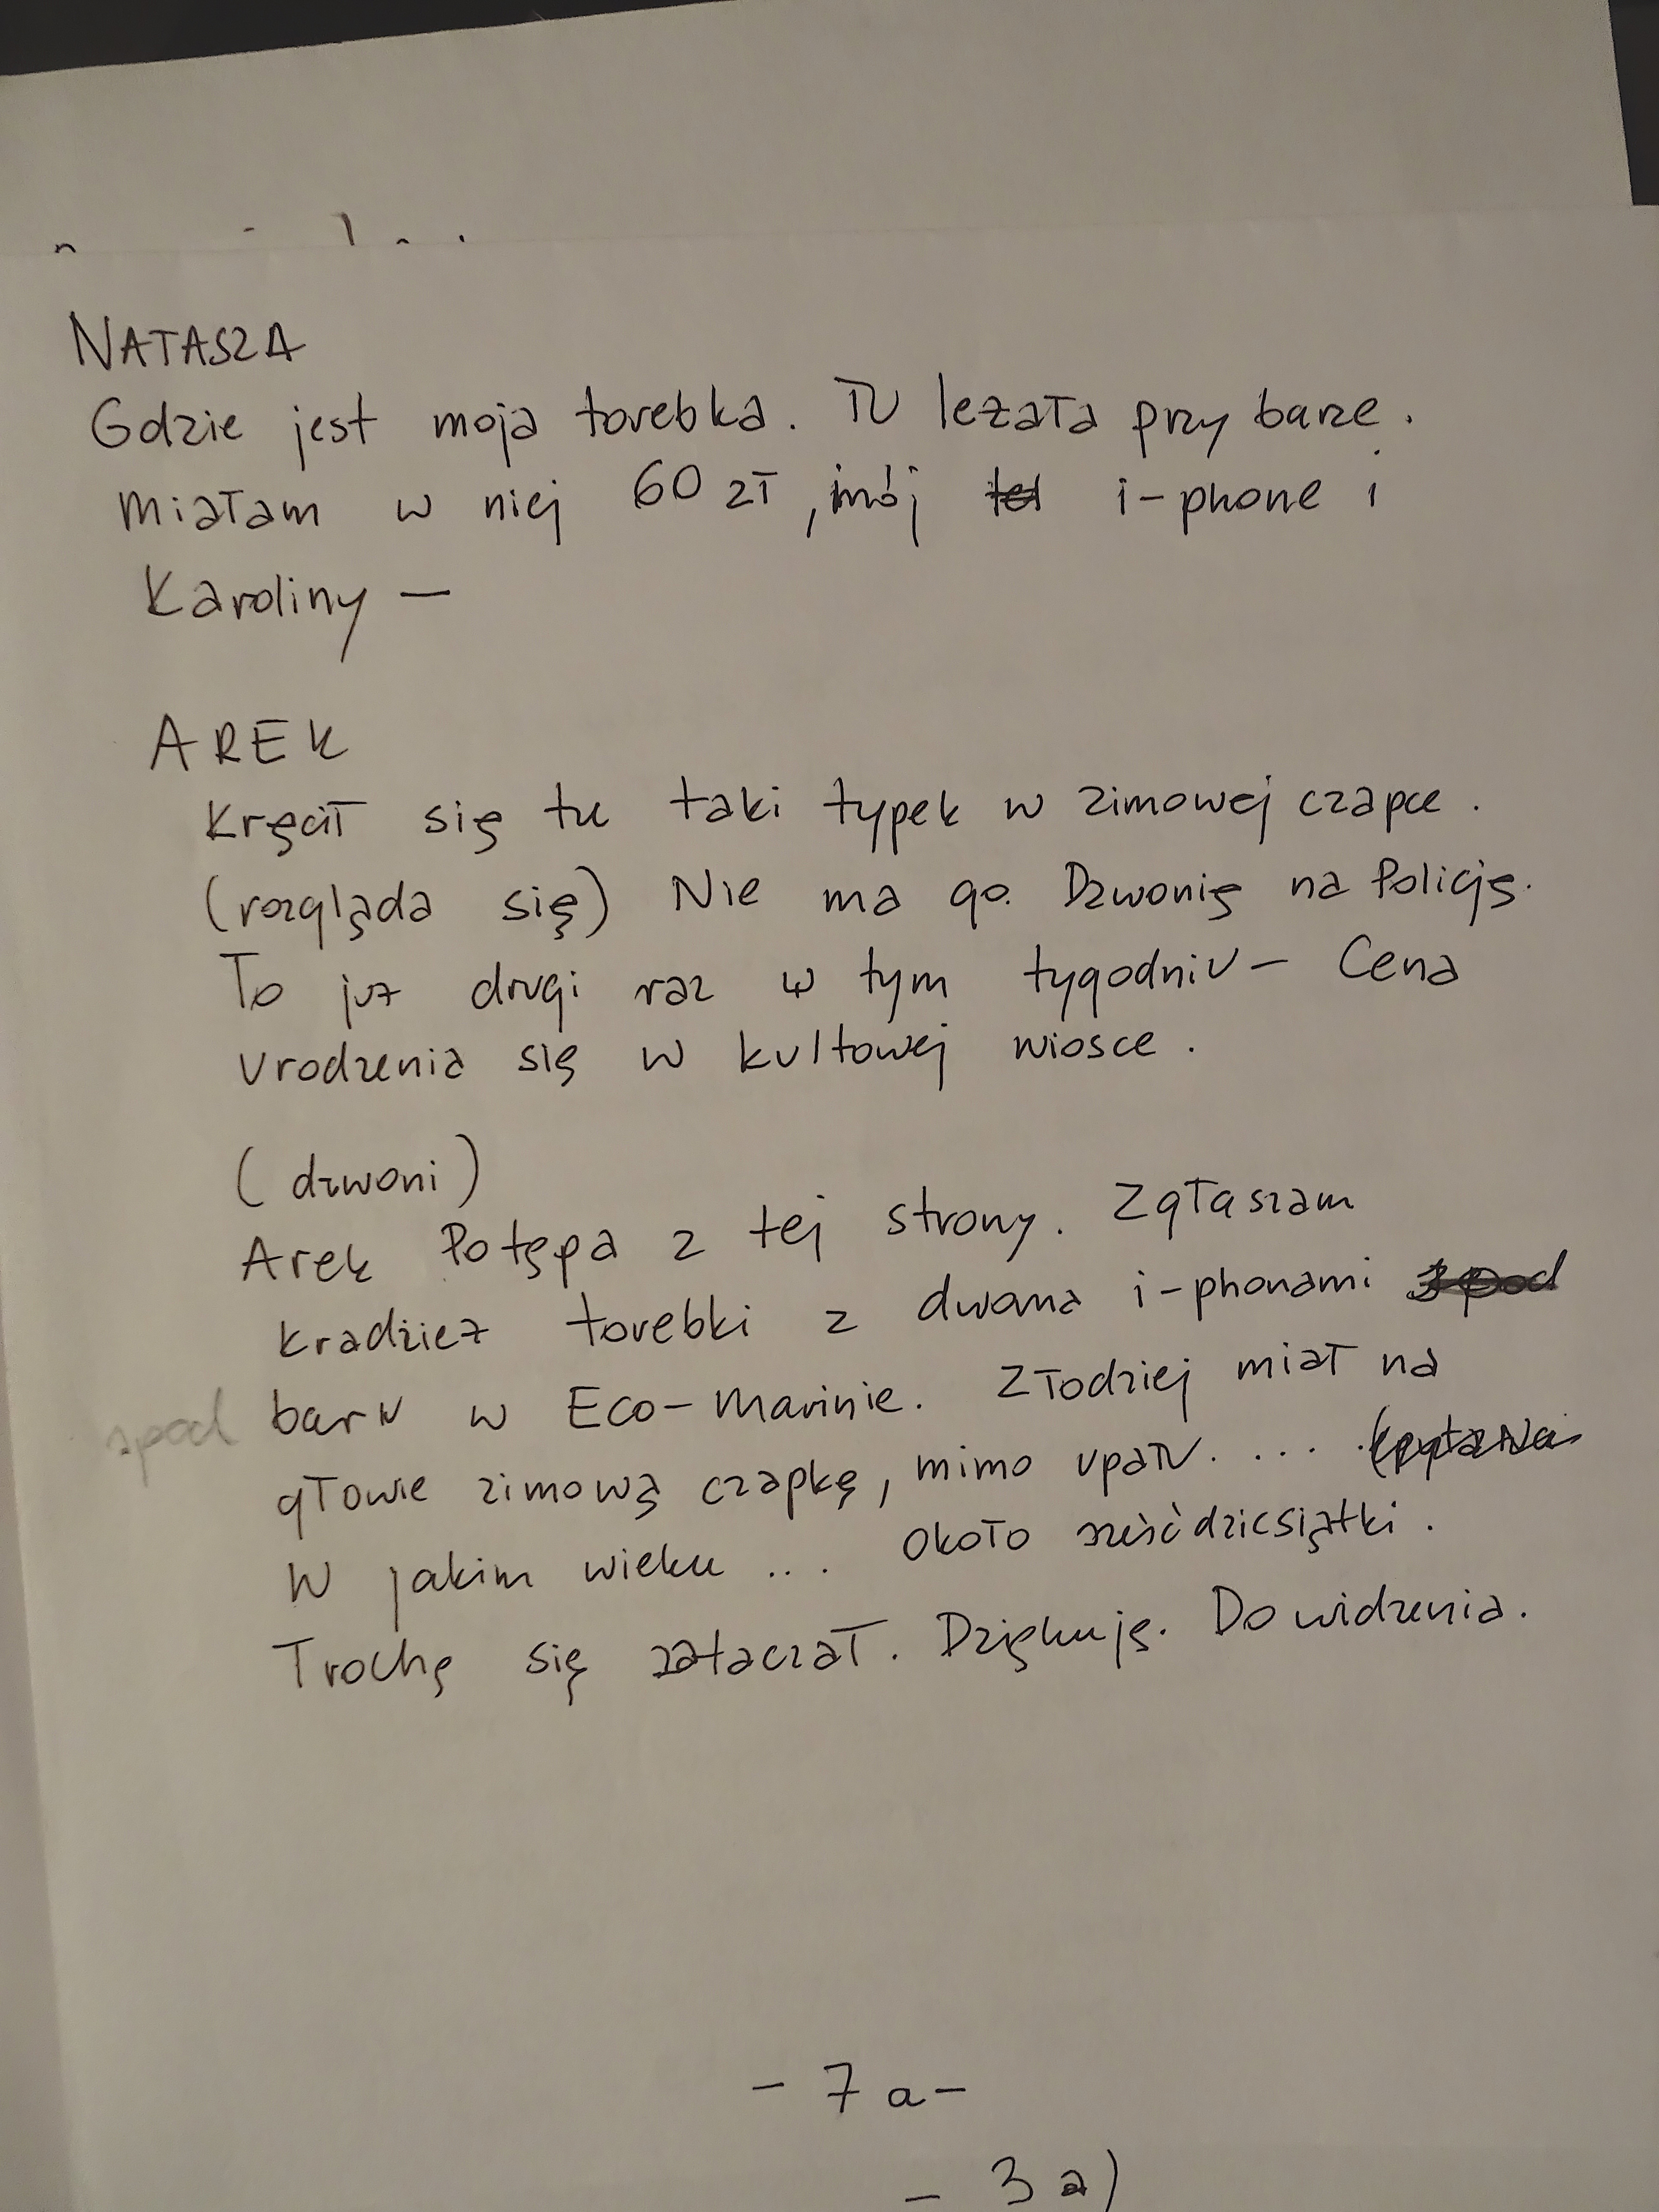 NATASZA
Gdzie jest moja torebka. Tu leżała przy barze.
Miałam w niej 60 zł, mój tel i-phone i
Karoliny –
AREK
Kręcił się tu taki typek w zimowej czapce.
(rozgląda się) Nie ma go. Dzwonię na Policję.
To już drugi raz w tym tygodniu – Cena
urodzenia się w kultowej wiosce.
(dzwoni)
Arek Potępa z tej strony. Zgłaszam
kradzież torebki z dwoma i-phonami spod
spod baru w Eco-Marinie. Złodziej miał na
głowie zimową czapkę, mimo upału. ...
W jakim wieku ... około sześćdziesiątki.
Trochę się zataczał. Dziękuję. Do widzenia.
- 7 a -
- 3 a)